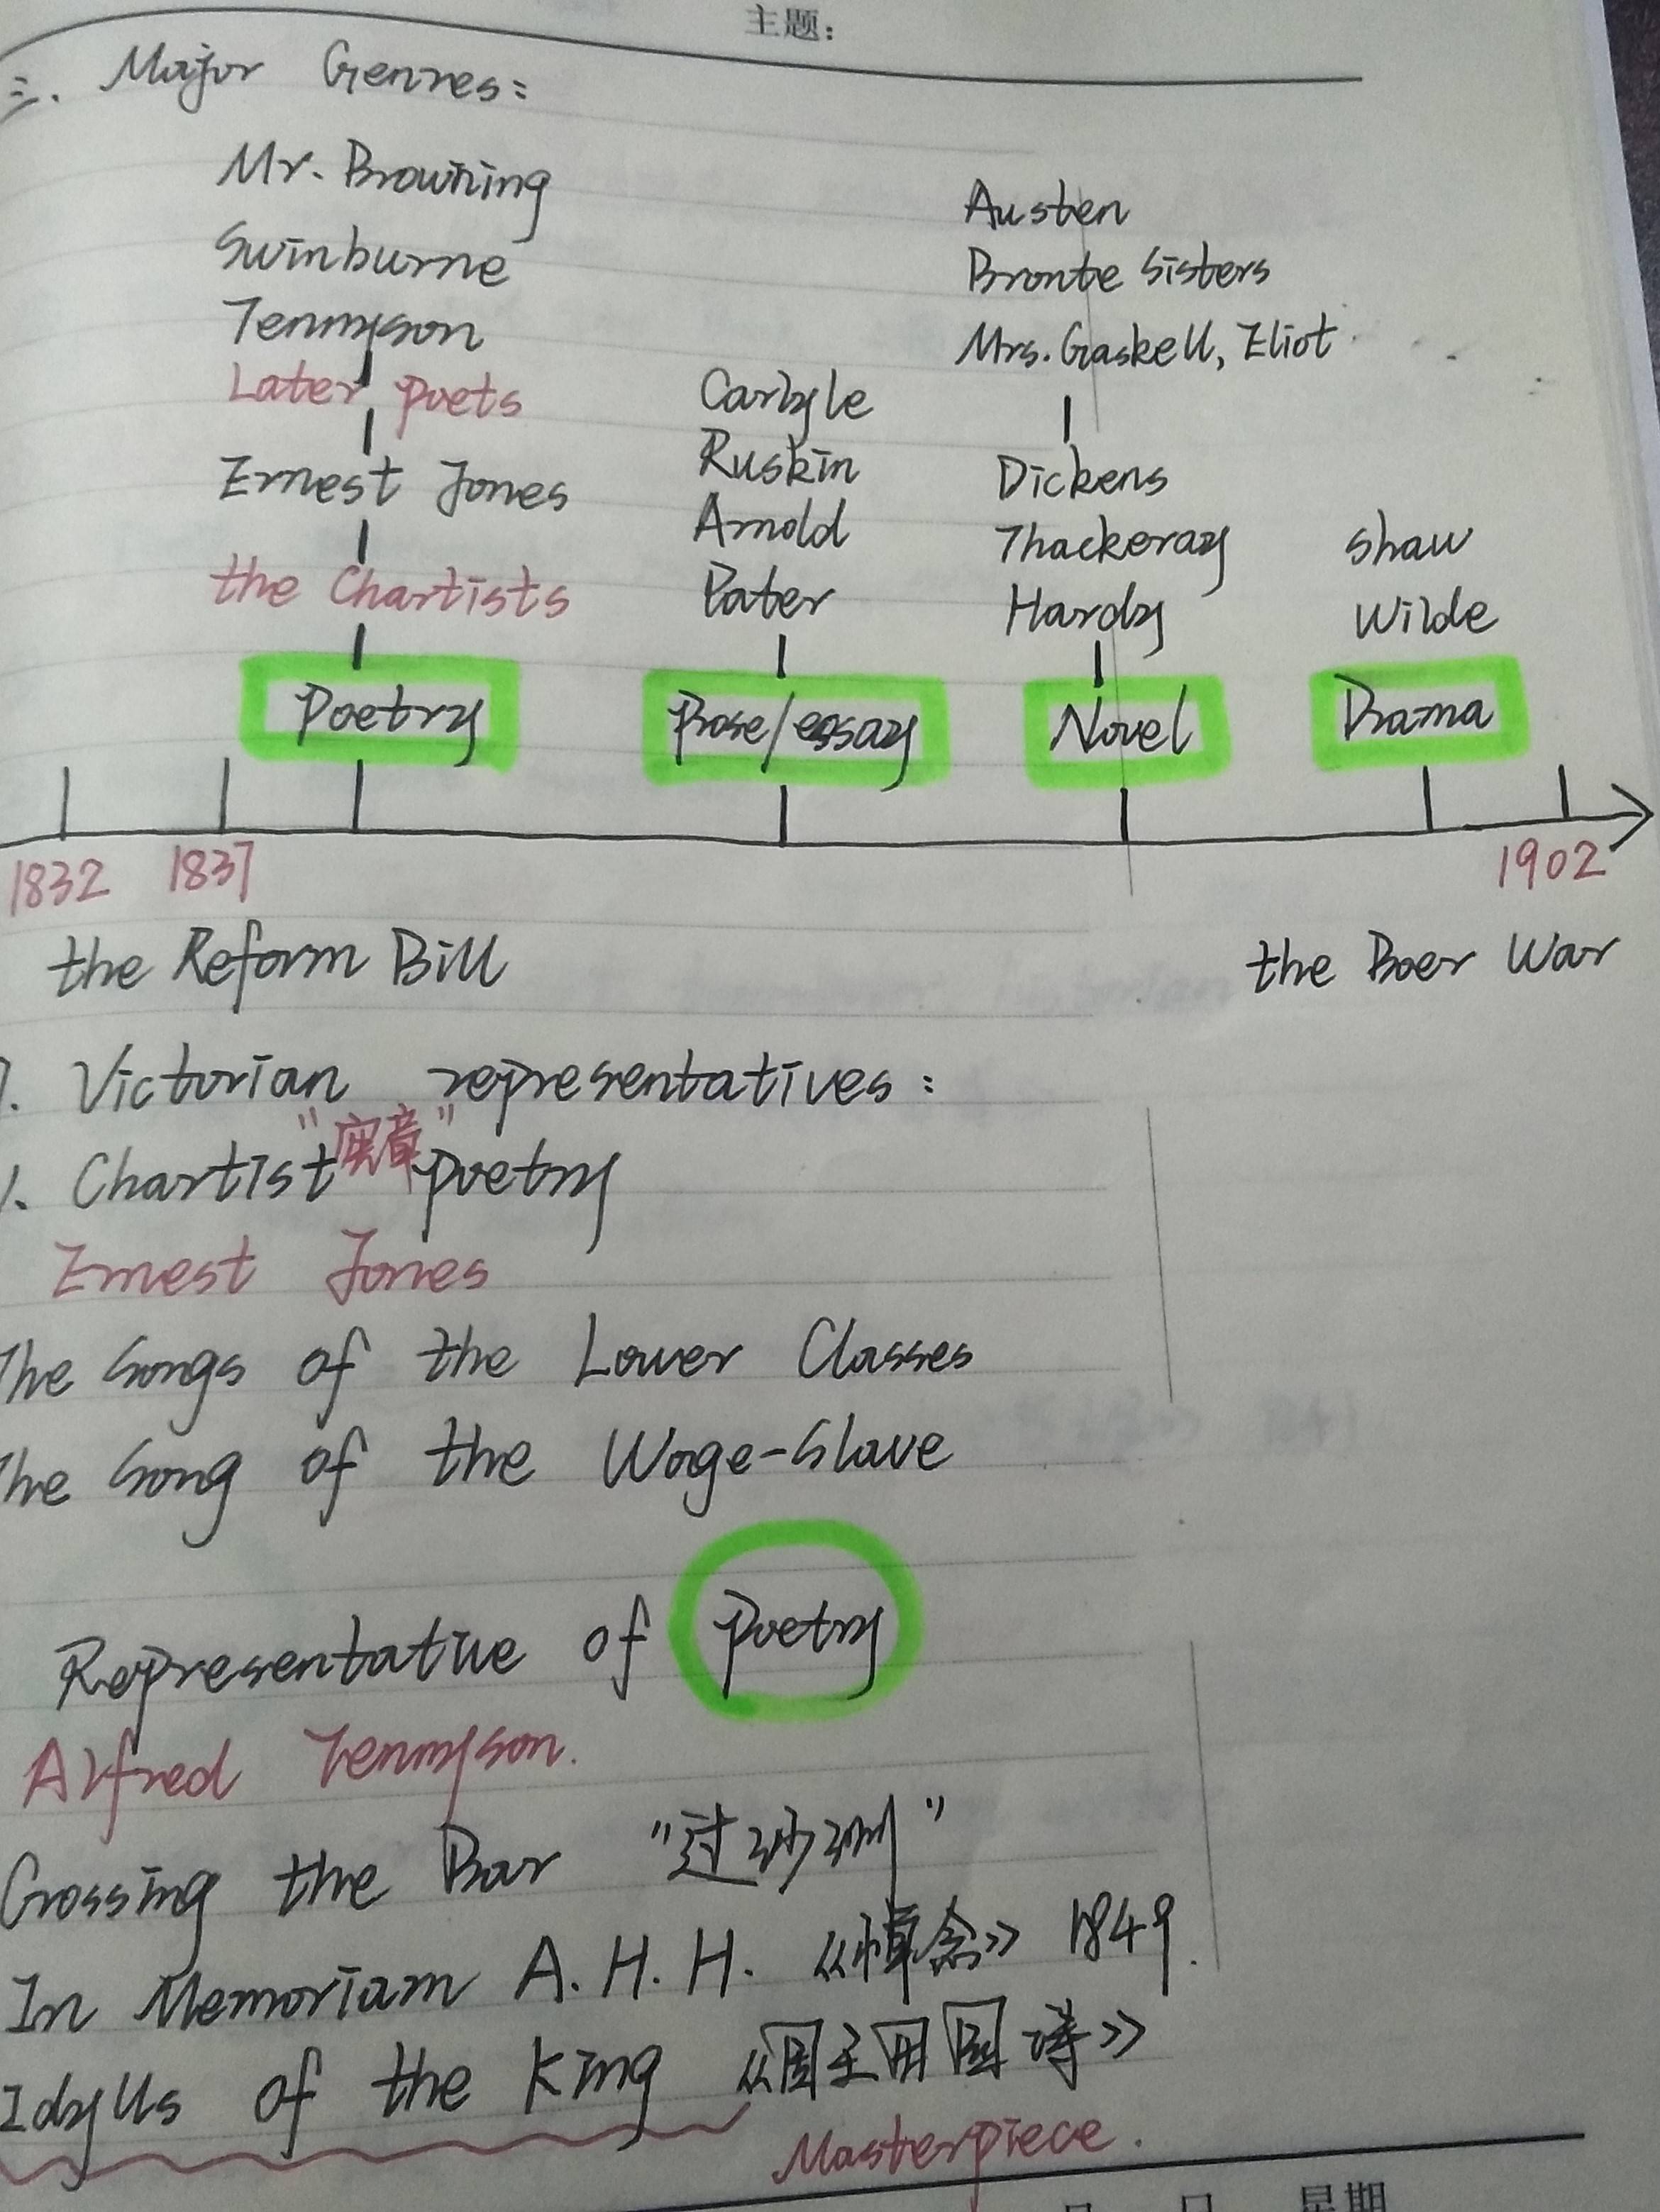 主题:
三. Major Genres:
Mr. Browning
Swinburne
Tennyson
Later poets
Ernest Jones
the Chartists
Poetry
Carlyle
Ruskin
Arnold
Pater
Prose/essay
Austen
Bronte Sisters
Mrs. Gaskell, Eliot
Dickens
Thackeray
Hardy
Novel
Shaw
Wilde
Drama
1832 1837 1902
the Reform Bill the Boer War
Victorian representatives:
1. Chartist "宪章" poetry
Ernest Jones
The Songs of the Lower Classes
The Song of the Wage-Slave
Representative of poetry
Alfred Tennyson.
Crossing the Bar "过沙洲"
In Memoriam A. H. H. 《悼念》 1849.
Idylls of the King 《国王田园诗》
Masterpiece.
月 日 星期